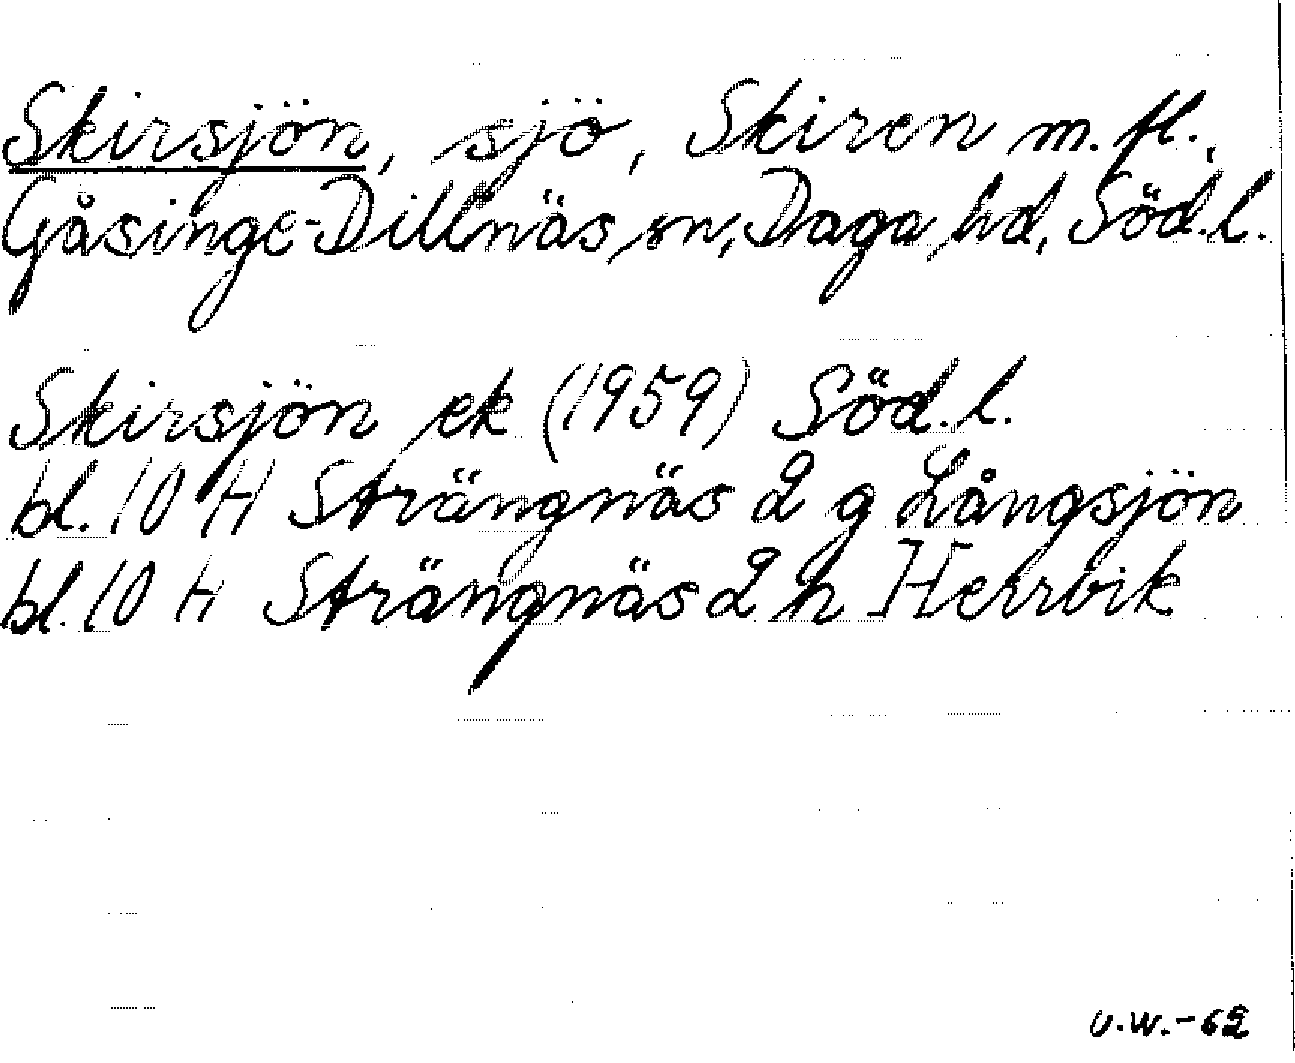 Skirsjön, sjö, Skiren m. fl.,
Gåsinge-Dillnäs sn, Daga hd, Söd. l.
Skirsjön ek (1959) Söd. l.
bl. 10 H Strängnäs 2 g Långsjön
bl. 10 H Strängnäs 2 h Herrvik
U.W.-62